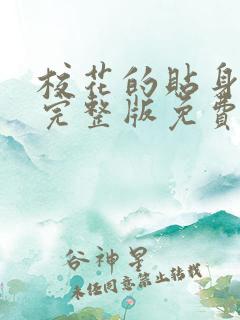 校花的贴身
完整版免費
谷神星
未经同意禁止转载